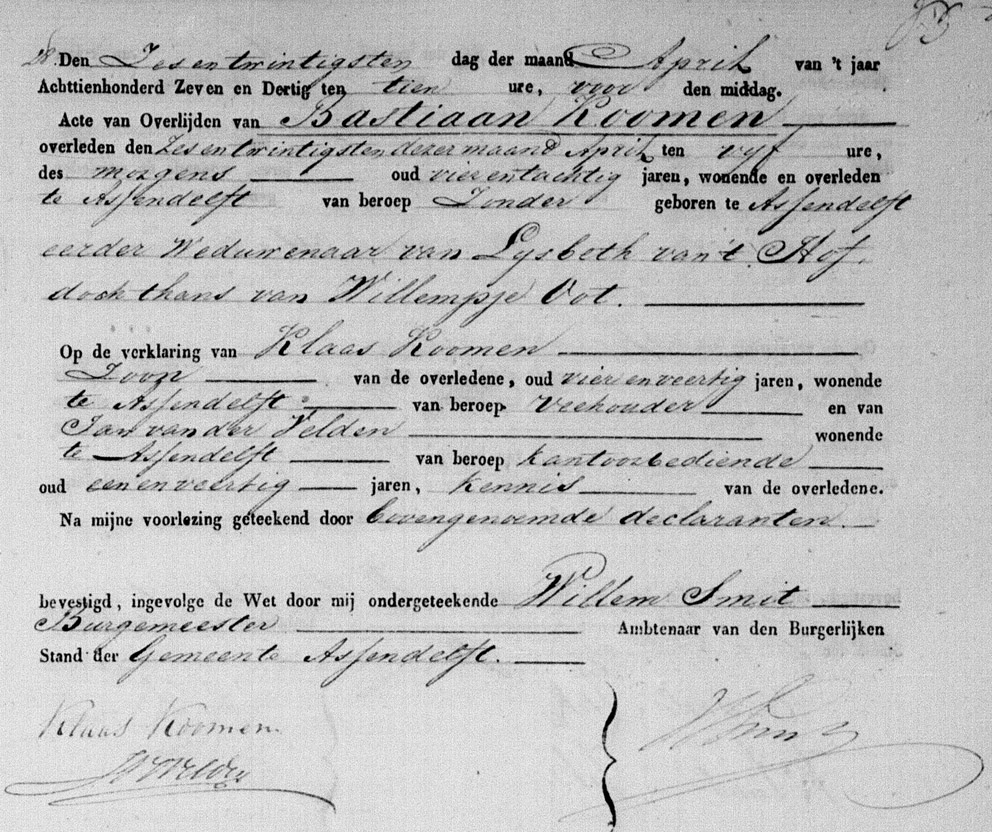 Den Zesentwintigsten dag der maand April van 't jaar
Achttienhonderd Zeven en Dertig ten tien ure, voor den middag.
Acte van Overlijden van Bastiaan Koomen
overleden den Zesentwintigsten dezer maand April ten vyf ure,
des morgens oud vierentachtig jaren, wonende en overleden
te Assendelft van beroep Zonder geboren te Assendelft
eerder Weduwenaar van Lysbeth van't Hof.
doch thans van Willempje Oot.
Op de verklaring van Klaas Koomen
Zoon van de overledene, oud vier en veertig jaren, wonende
te Assendelft van beroep Veehouder en van
Jan van der Velden wonende
te Assendelft van beroep kantoorbediende
oud eenenveertig jaren, kennis van de overledene.
Na mijne voorlezing geteekend door bovengenoemde declaranten.
bevestigd, ingevolge de Wet door mij ondergeteekende Willem Smit
Burgemeester Ambtenaar van den Burgerlijken
Stand der Gemeente Assendelft.
Klaas Koomen